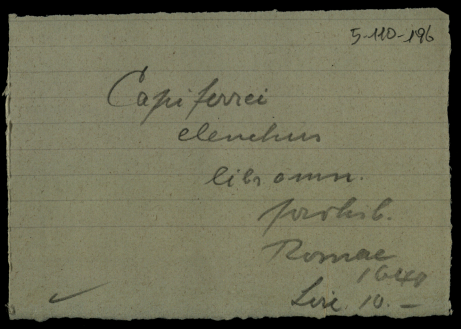 5-110-196
Capiferrei
elenchus
libr omn.
prohib.
Romae
1640
Lire 10.—